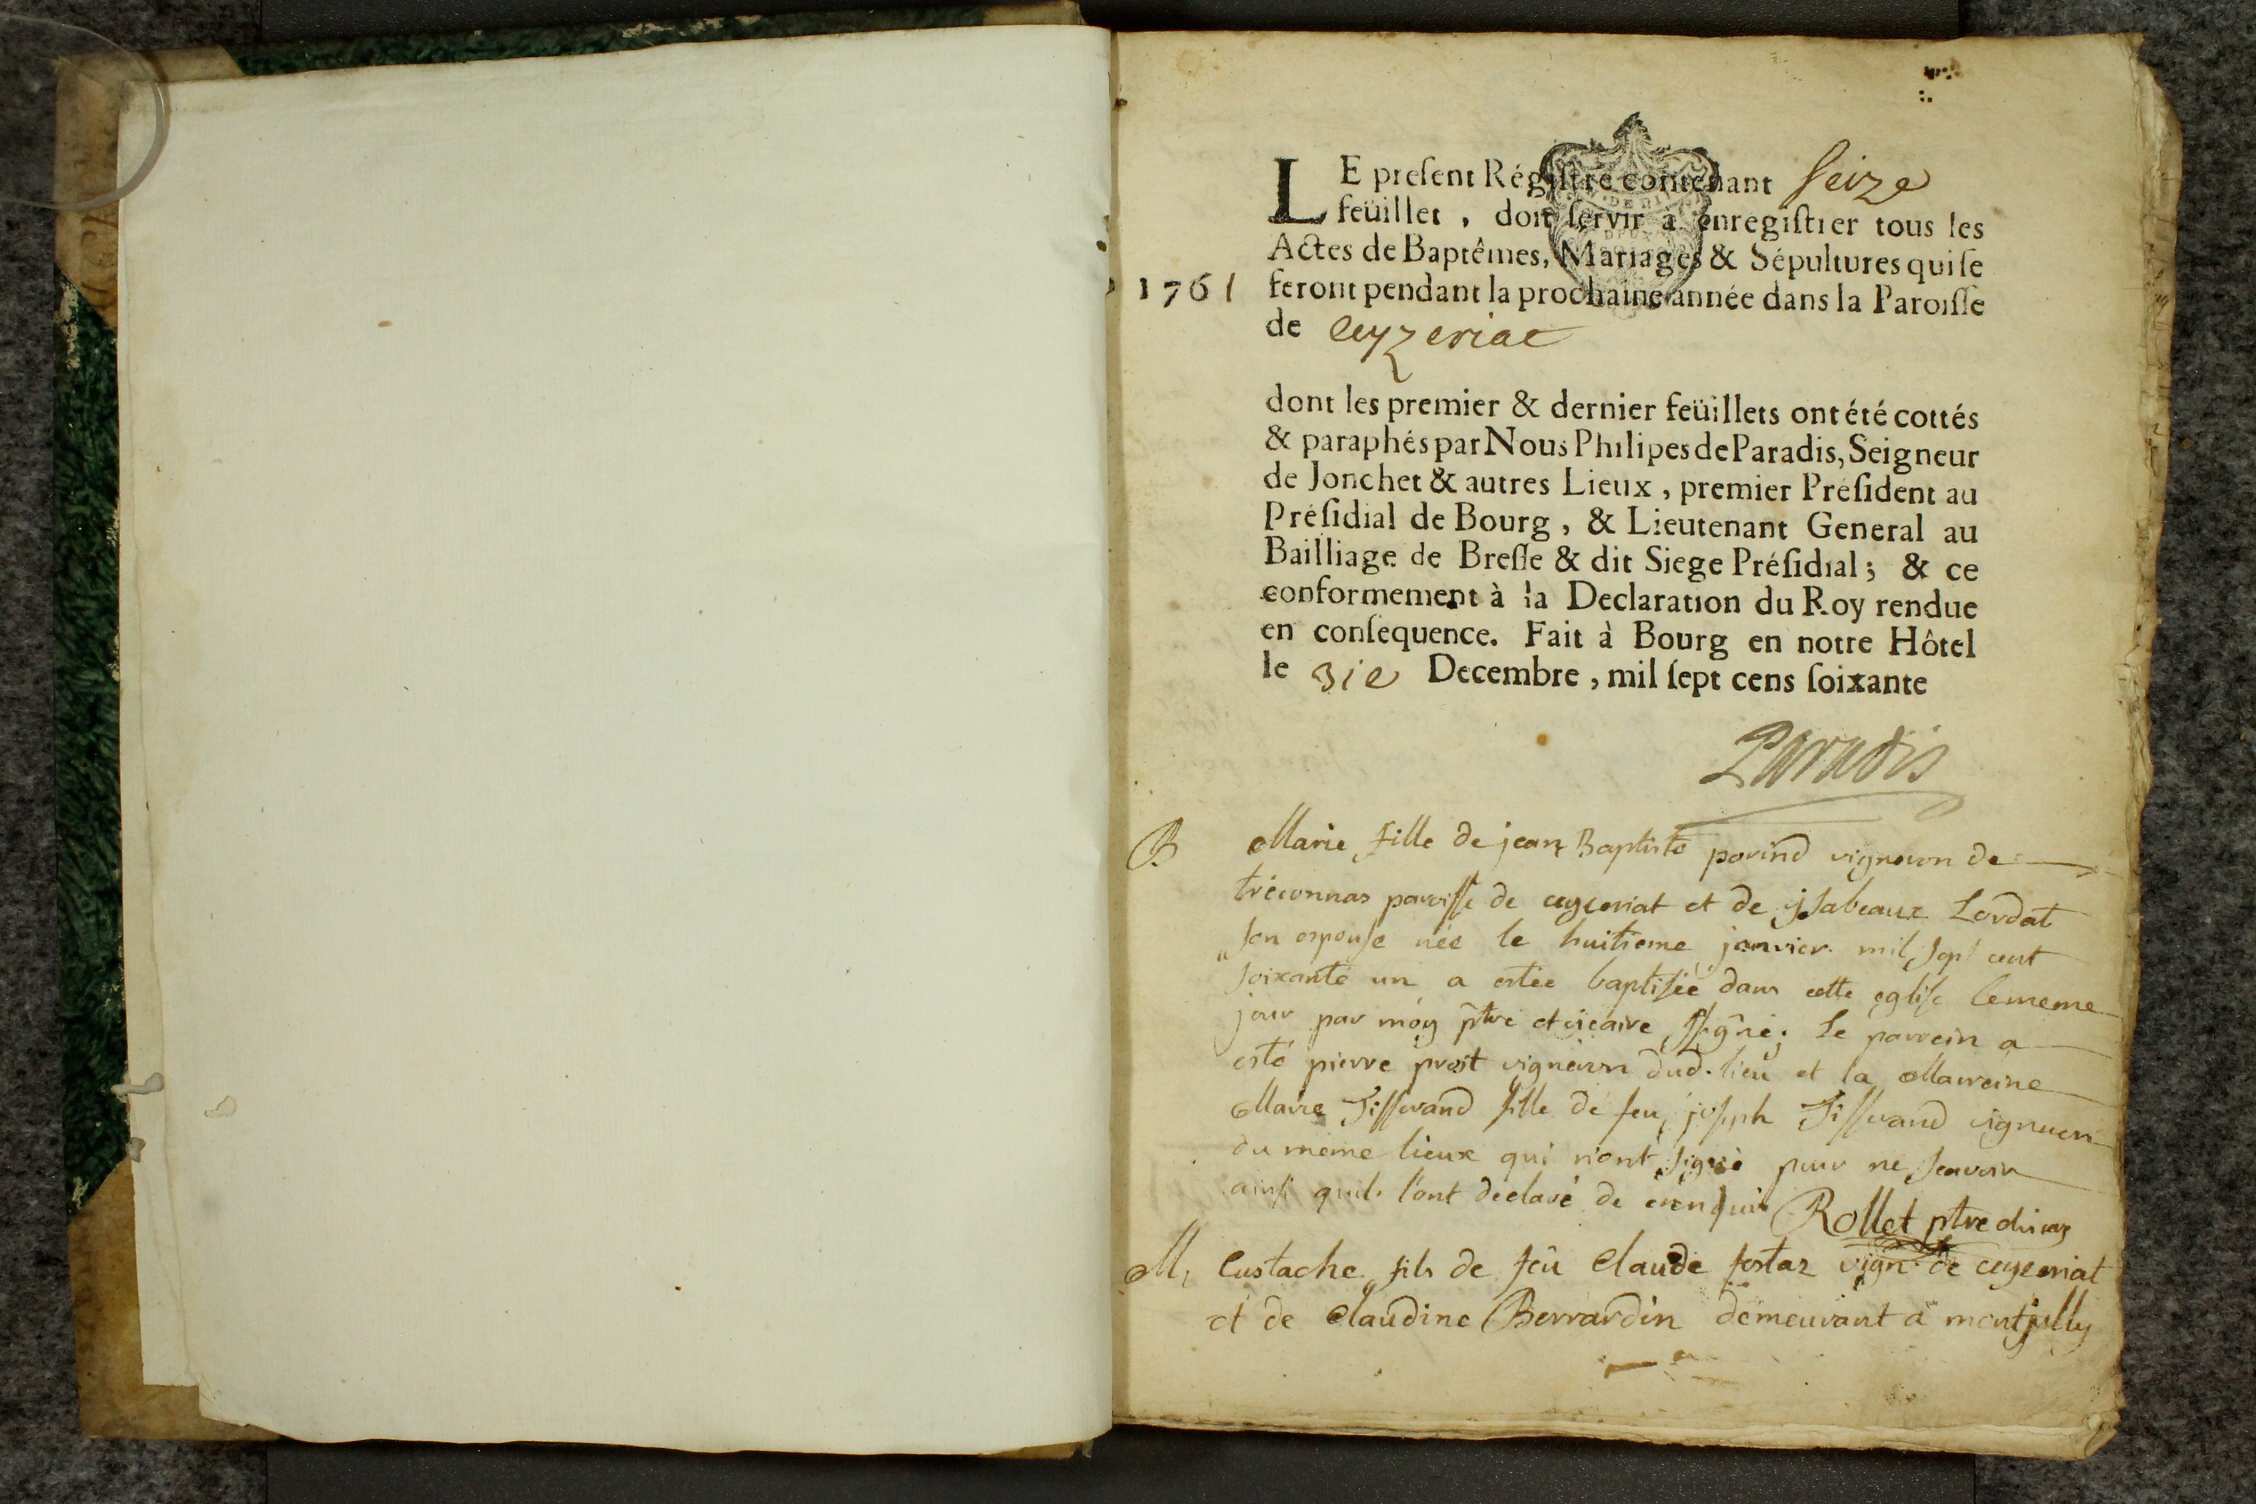 LE present Régistre contenant Seize
feüillet, doit servir à enregistrer tous les
Actes de Baptêmes, Mariages & Sépultures qui se
1761 feront pendant la prochaine année dans la Paroisse
de Ceyzeriat
dont les premier & dernier feüillets ont été cottés
& paraphés par Nous Philipes de Paradis, Seigneur
de Jonchet & autres Lieux, premier Président au
Présidial de Bourg, & Lieutenant General au
Bailliage de Bresse & dit Siege Présidial; & ce
conformement à la Declaration du Roy rendue
en consequence. Fait à Bourg en notre Hôtel
le 31e Decembre, mil sept cens soixante
Paradis
B Marie fille de jean Baptiste parind vigneron de
tréconnas paroisse de ceyzeriat et de ysabeaux Lordat
son espouse née le huitieme janvier mil sept cent
soixante un a estée baptisée dans cette eglise le meme
jour par moy ptre et vicaire ssigné; le parrein a
esté pierre prost vigneron dud. lieu et la Marreine
Marie Tisserand fille de feu joseph Tisserand vigneron
du meme lieux qui n'ont signé pour ne scavoir
ainsi quil l'ont declaré de ce enquis Rollet ptre vicaire
M, Eustache fils de feû Claude fostaz vign. de ceyzeriat
et de Claudine Berrardin demeurant a montjully